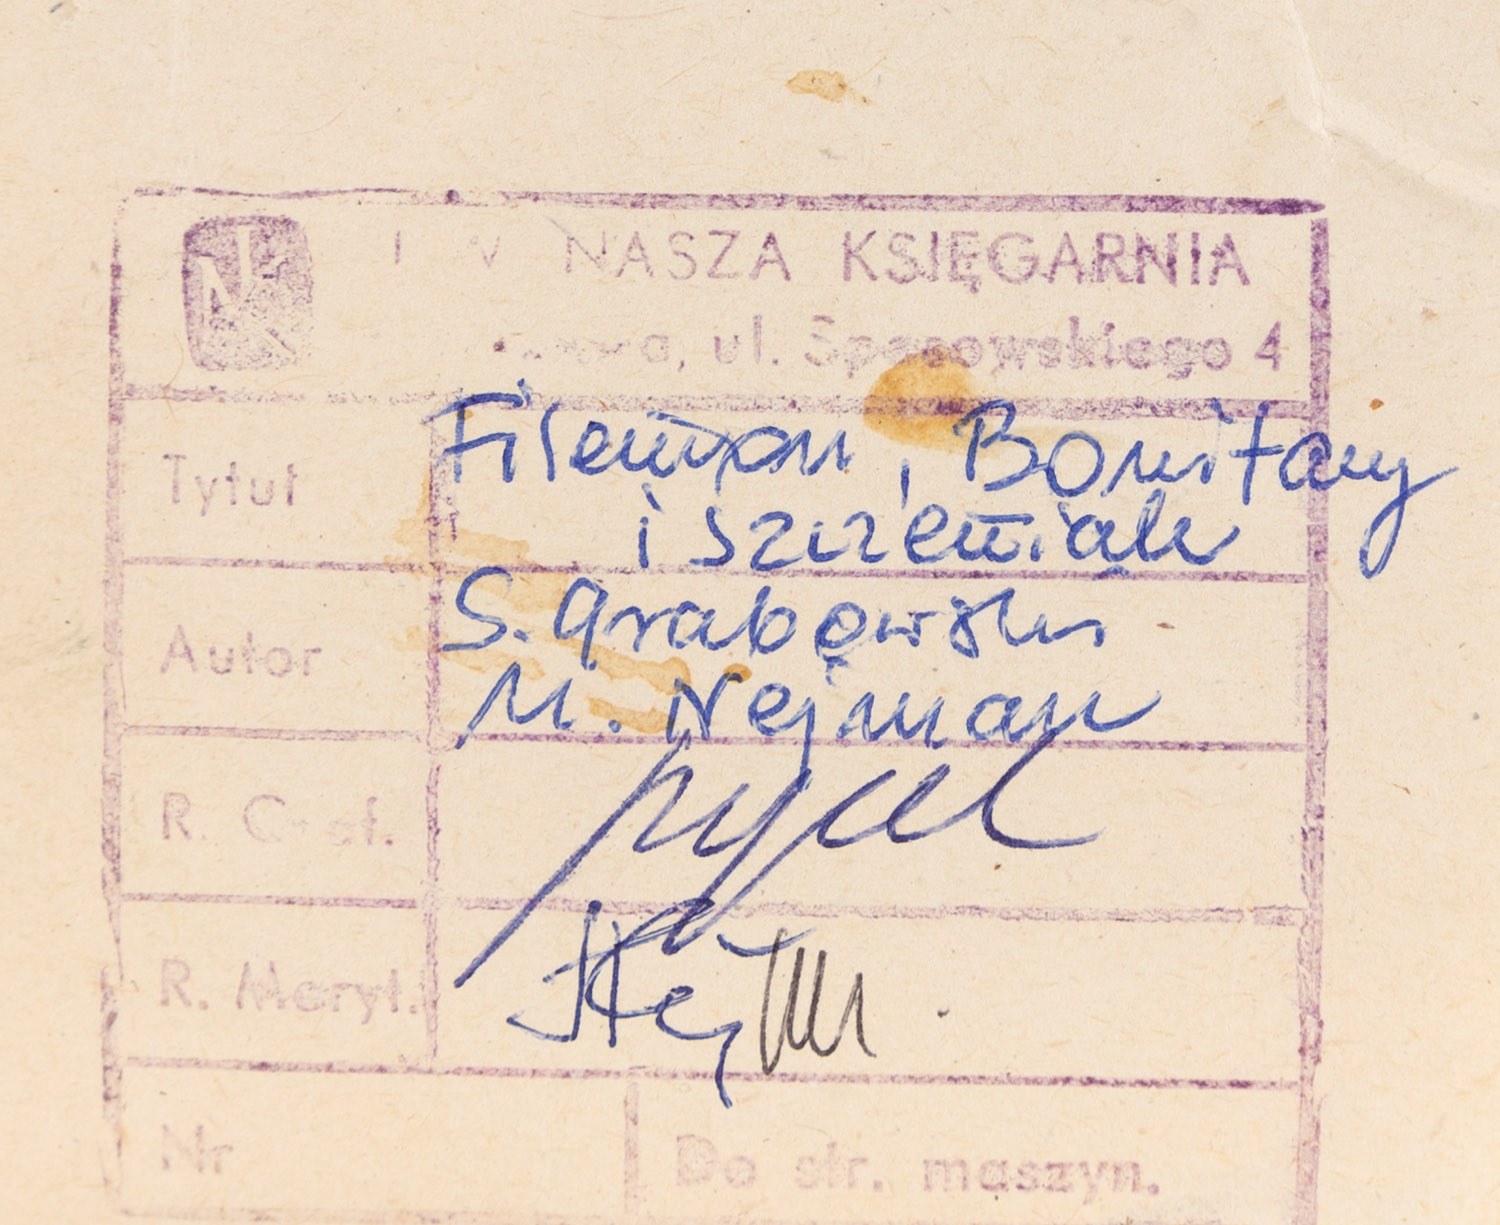 NASZA KSIĘGARNIA
ul. Spasowskiego 4
Tytuł Filemon, Bonifacy
i szczeniak
Autor S. Grabowski
M. Nejman
R. Graf.
R. Meryt.
Nr Do str. maszyn.